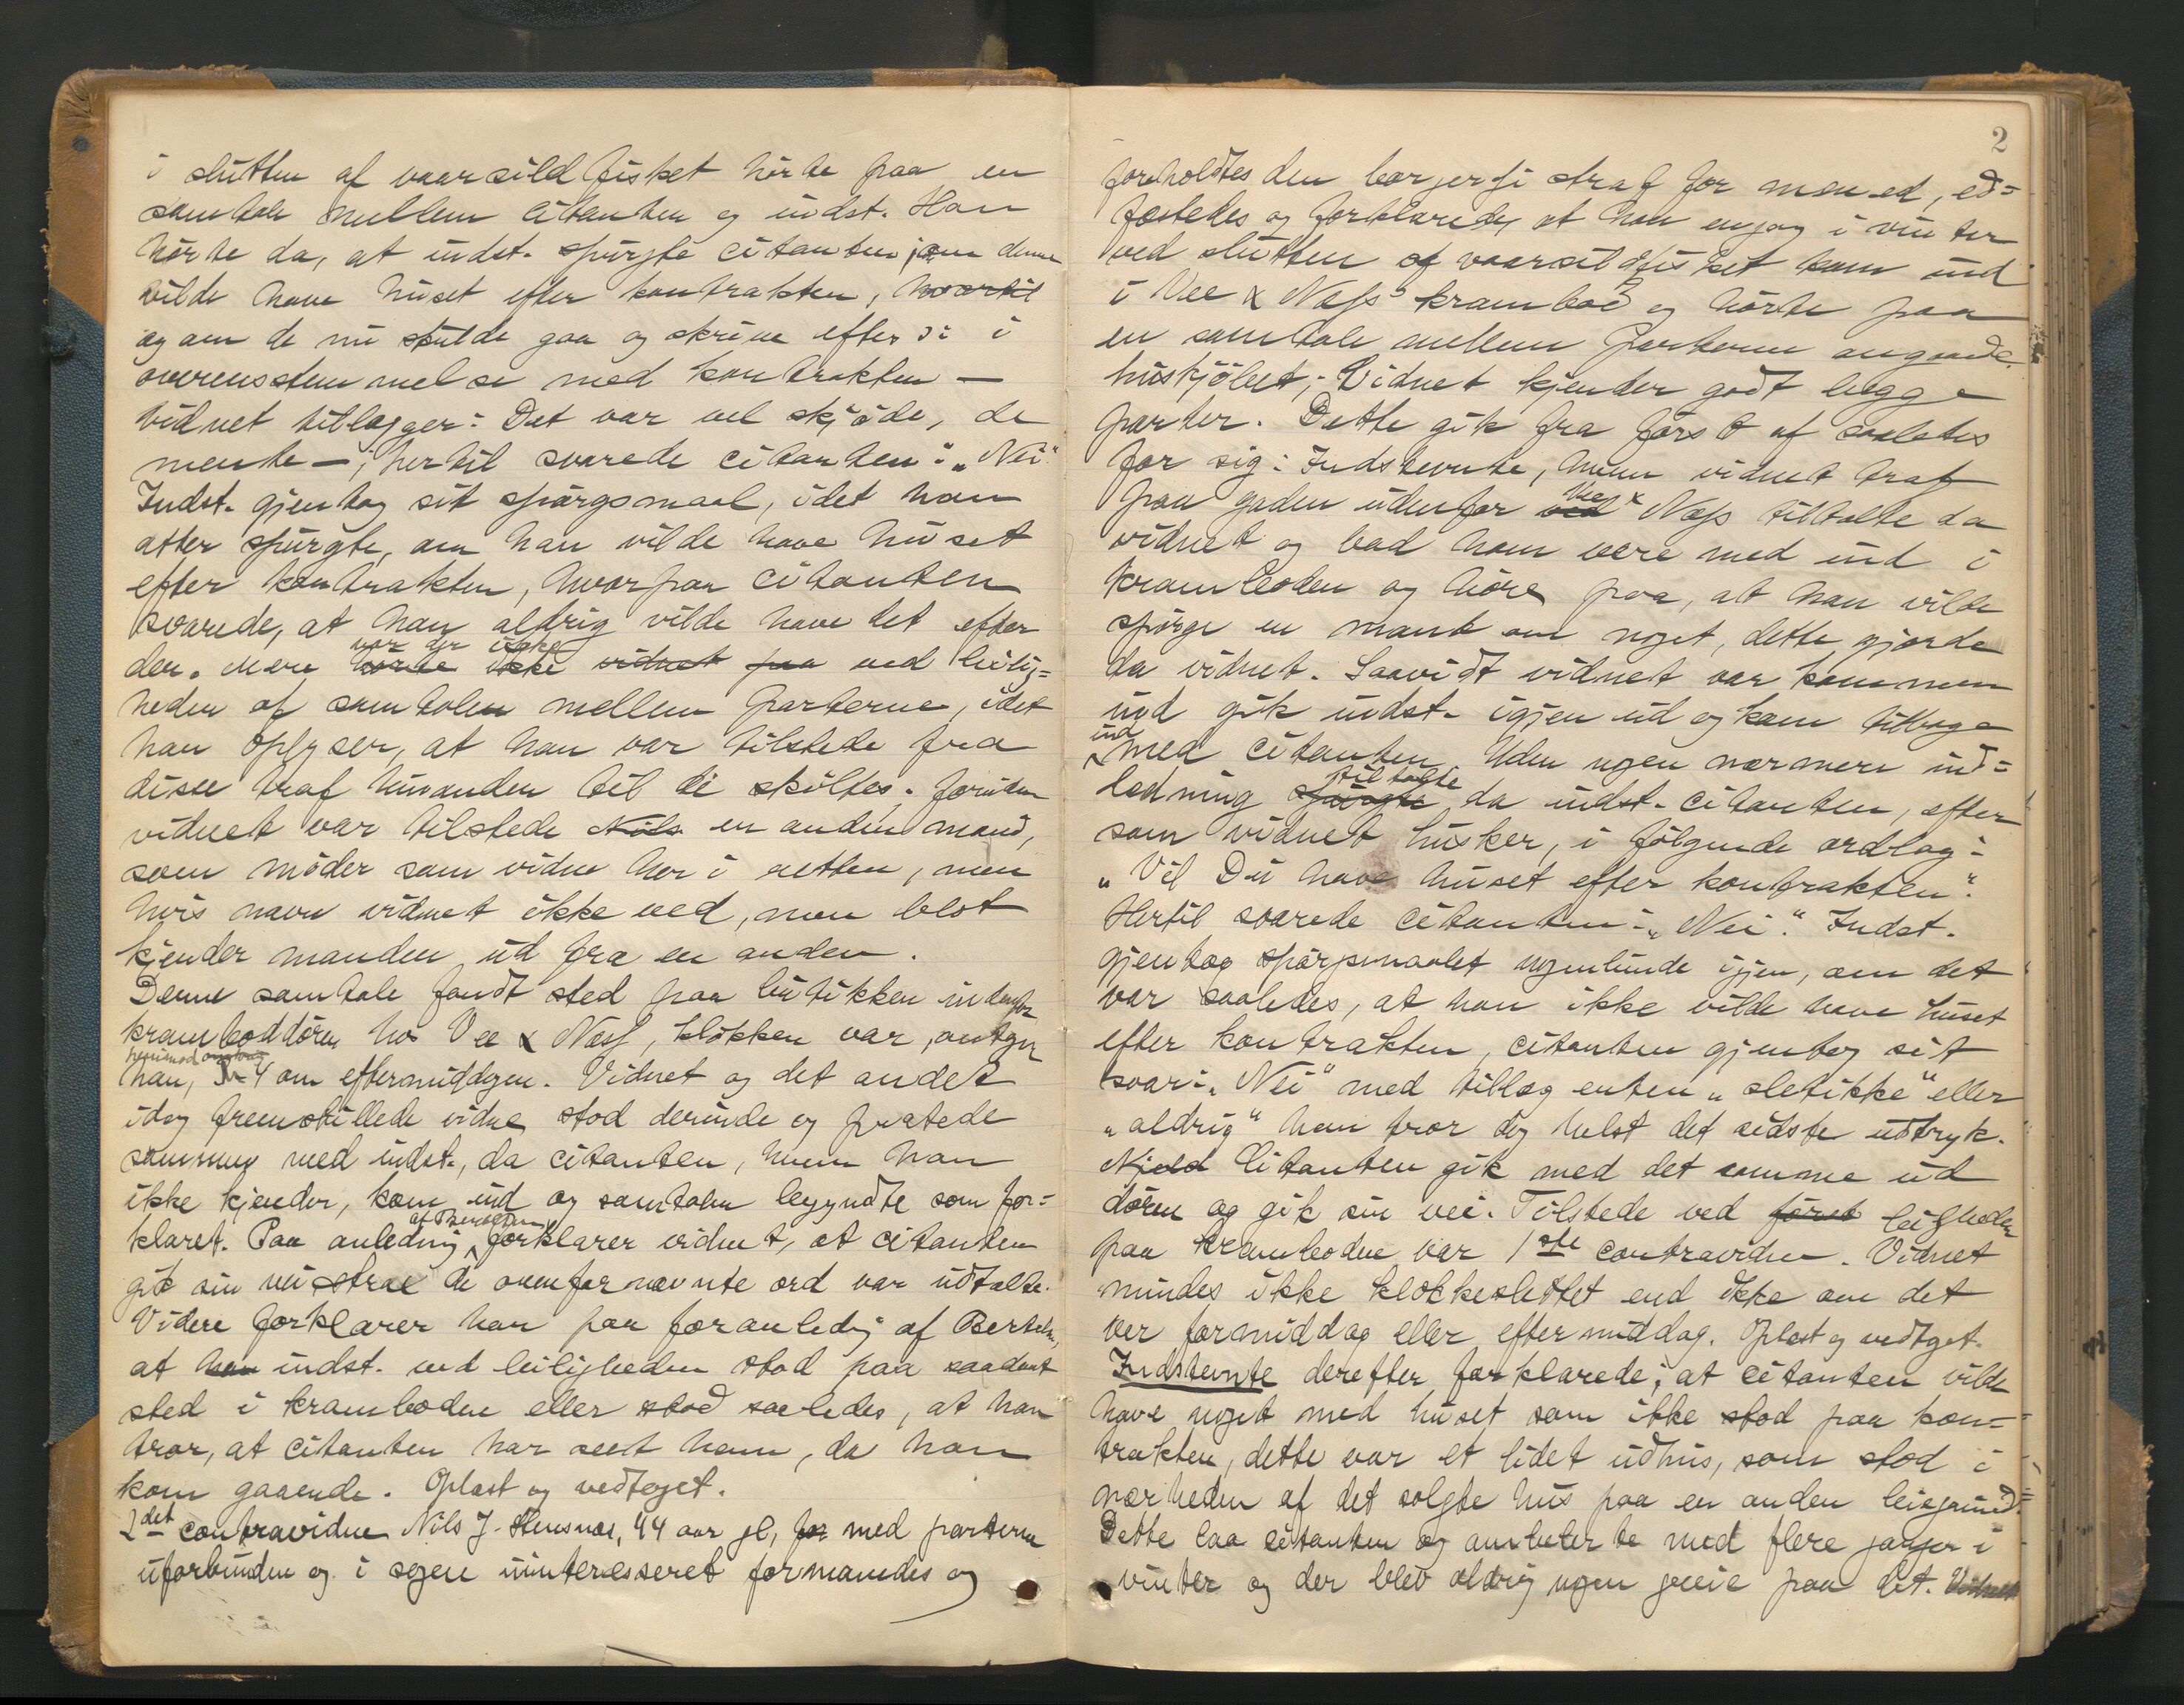 i slutten af vaarsildfisket hörte paa en
samtale mellem citanten og indst. Han
hörte da, at indst. spurgte citanten, om denne
vilde have huset efter kontrakten, hvortil
og om de nu skulde gaa og skrive efter o: i
overensstemmelse med kontrakten —
vidnet tillægger: Det var vel skjöde, de
mente —; hertil svarede citanten: „Nei“
Indst. gjentog sit spörgsmaal, idet han
atter spurgte, om han vilde have huset
efter kontrakten, hvorpaa citanten
svarede, at han aldrig vilde have det efter
den. Mere hörte ikke vidnet paa ved leilig=
var der ikke
heden af samtalen mellem parterne, idet
han oplyser, at han var tilstede fra
disse traf hinanden til de skiltes. Foruden
vidnet var tilstede Nils en anden mand,
som möder som vidne her i retten, men
hvis navn vidnet ikke ved, men blot
kjender manden ud fra en anden.
Denne samtale fandt sted paa butikken indenfor
kramboddören hos Vee & Næss, klokken var, antyr
henimod
han, 3-4 om eftermiddagen. Vidnet og det andet
idag fremstillede vidne stod derinde og pratede
sammen med indst., da citanten, hvem han
ikke kjender, kom ind og samtalen begyndte som for=
klaret. Paa anledning af Bertelsen forklarer vidnet, at citanten
gik sin vei strax de ovenfornævnte ord var udtalte.
Videre forklarer han paa foranledg af Bertels.,
at han indst. ved leiligheden stod paa saadant
sted i kramboden eller stod saaledes, at han
tror, at citanten har seet ham, da han
kom gaaende. Oplæst og vedtaget.
2det contravidne Nils J. Stensnes, 44 aar gl, for med parterne
uforbunden og i sagen uinteresseret formanedes og
2
foreholdtes den borgerli straf for mened, ed=
fæstedes og forklarede, at han engang i vinter
ved slutten af vaarsildfisket kom ind
i Vee & Næss' krambod og hörte paa
en samtale mellem parterne angaaende
huskjöbet; Vidnet kjender godt begge
parter. Dette gik fra först af saaledes
for sig: Indstevnte, hvem vidnet traf
paa gaden udenfor ved Vee & Næss tiltalte da
vidnet og bad ham være med ind i
kramboden og höre paa, at han vilde
spörge en mand om noget, dette gjorde
da vidnet. Saavidt vidnet var kommen
ind gik indst. igjen ud og kom tilbage
ind
med citanten. Uden nogen nærmere ind=
ledning spurgte tiltalte da indst. citanten, efter
som vidnet husker, i fölgende ordlag:
„Vil Du have huset efter kontrakten“.
Hertil svarede citanten: „Nei“. Indst.
gjentog spörgsmaalet nogenlunde igjen, om det
var saaledes, at han ikke vilde have huset
efter kontrakten, citanten gjentog sit
svar: „Nei“ med tillæg enten „sletikke“ eller
„aldrig“ han tror dog helst det sidste udtryk.
Citanten gik med det samme ud
dören og gik sin vei. Tilstede ved leiligheden
paa kramboden var 1ste contravidne. Vidnet
mindes ikke klokkeslettet end ikke om det
var formiddag eller eftermiddag. Oplæst og vedtget.
Indstevnte derefter forklarede, at citanten vilde
have noget med huset som ikke stod paa kon=
trakten, dette var et lidet udhus, som stod i
nærheden af det solgte hus paa en anden leiegrund.
Dette laa citanten og anbeterte med flere ganger i
vinter og der blev aldrig nogen greie paa det. Vidnet